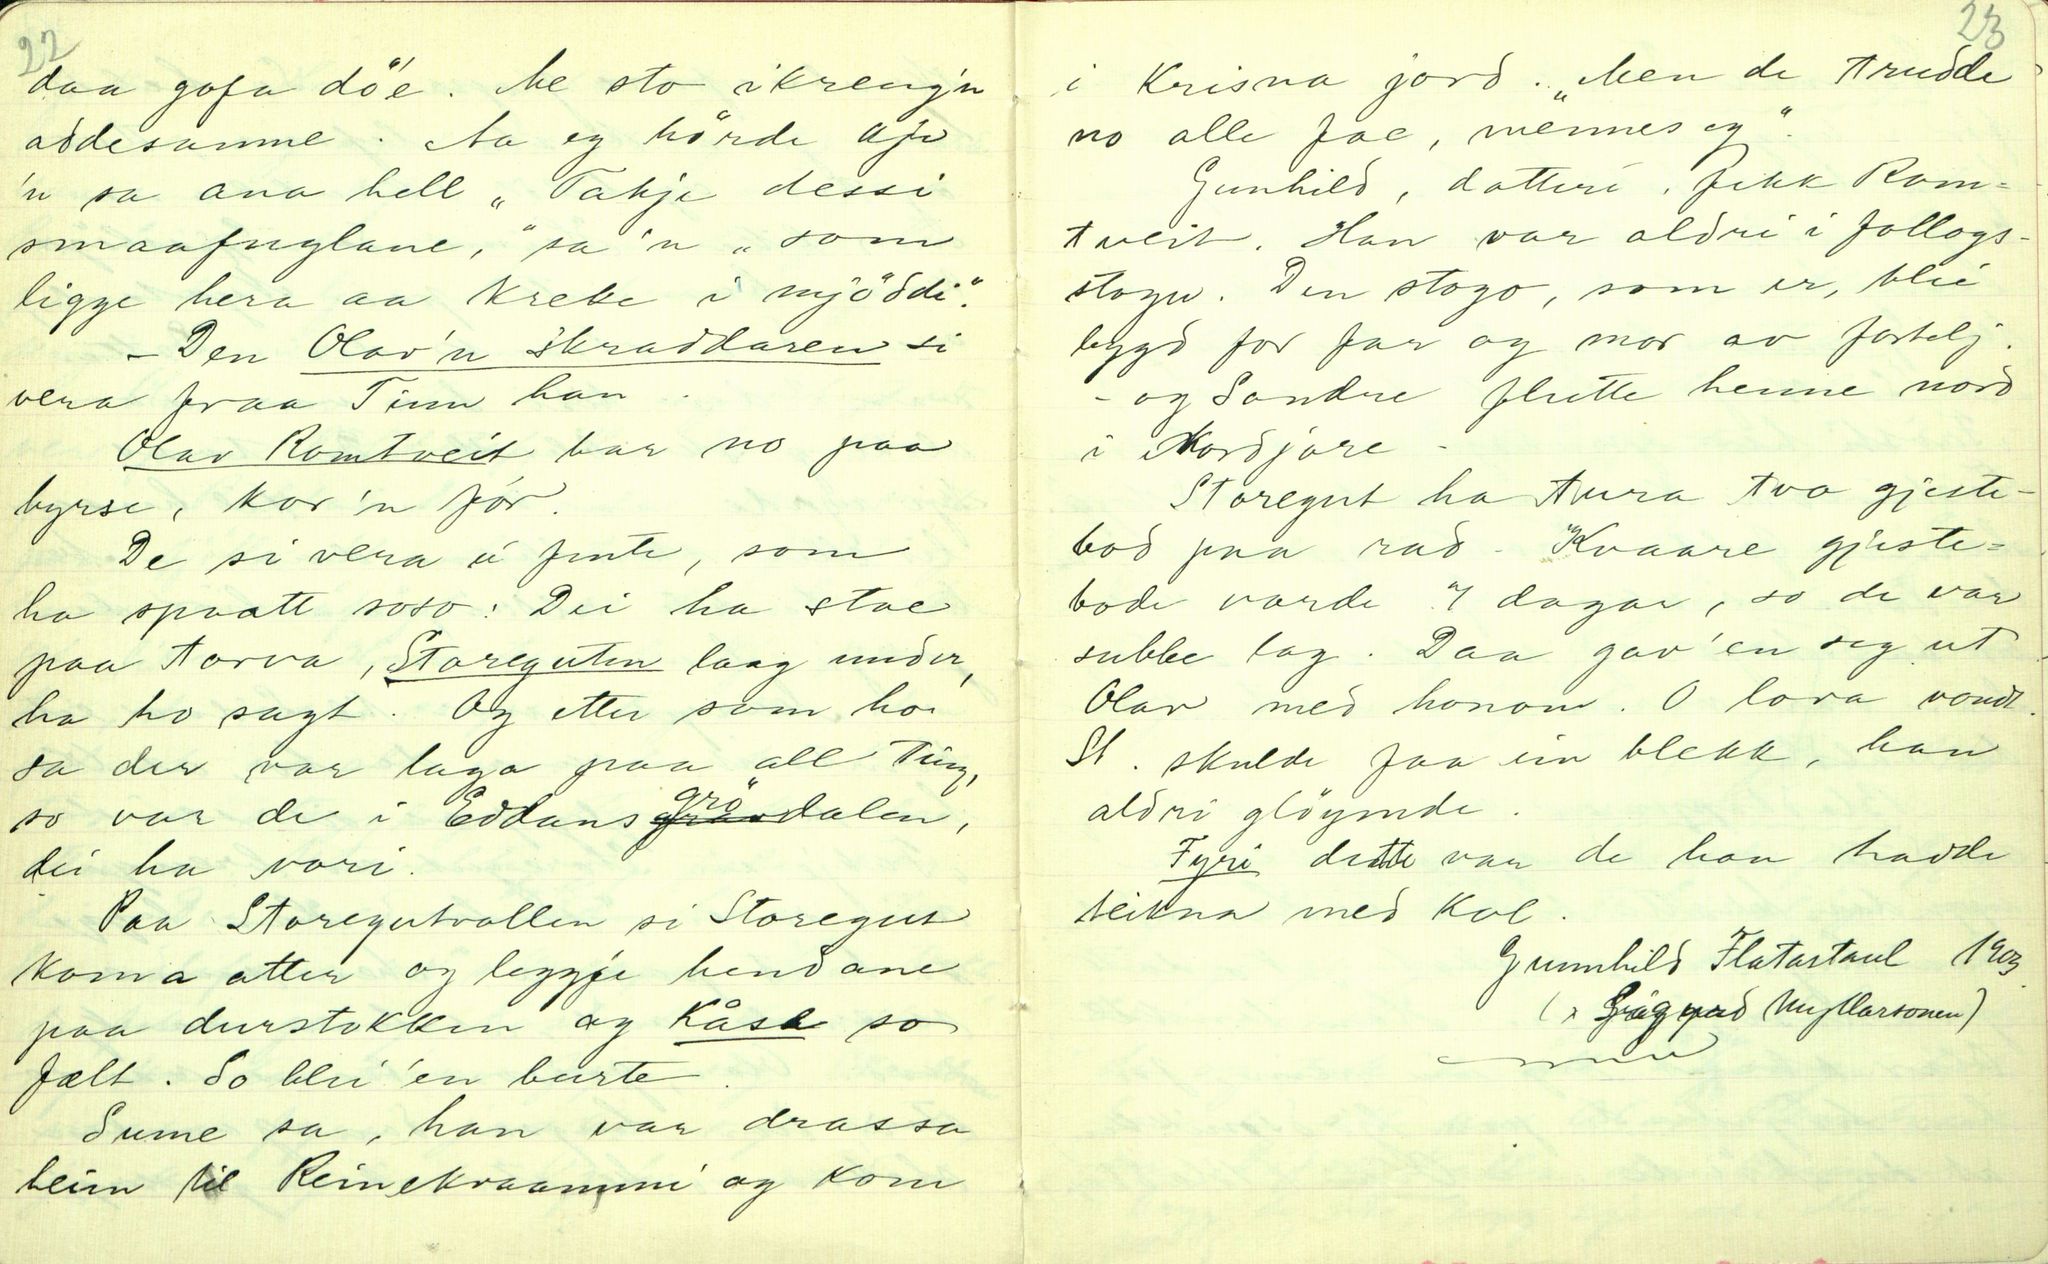 22
daa gofa döe. Me sto ikreng'n
addesamme. Aa eg hörde aje
'n sa ana hell „Takje dessi
smaafuglane,“ sa 'n „som
ligge hera aa kreke i mjöddi“.
– Den Olav'n skraddaren si
vera fraa Tinn han.
Olav Romtveit bar no paa
byrse, kor 'n fór.
De si vera ei jente, som
ha spaatt soso: Dei ha stae
paa torva, Storeguten laag under,
ha ho sagt. Og etter som ho
sa der var laga paa all ting,
so var de i Eddansgrödalen,
dei ha vori.
Paa Storegutvollen si Storegut
koma atter og leggje hendane
paa durstokken og kåsa so
fælt. So blei 'en burte.
Sume sa, han var drassa
heim til Reinekvaammi og kom
23
i Krisna jord. „Men de trudde
no alle fae, mennes eg“.
Gunhild, datteri, fekk Rom-
tveit. Han var aldri i follogs-
stogu. Den stogo, som er, blei
bygd for far og mor av fortelj.
– og Sondre flutte henne nord
i Nordjore –
Storegut ha tura tvo gjeste-
bod paa rad. Kvaare gjeste-
bode varde 4 dagar, so de var
subbe lag. Daa gav 'en seg ut
Olav med honom. O lova vondt.
St. skulde faa ein blekk, han
aldri glöymde.
Fyri dette var de han hadde
teikna med kol.
Gunnhild Flatastaul 1903
Myllarsonen)